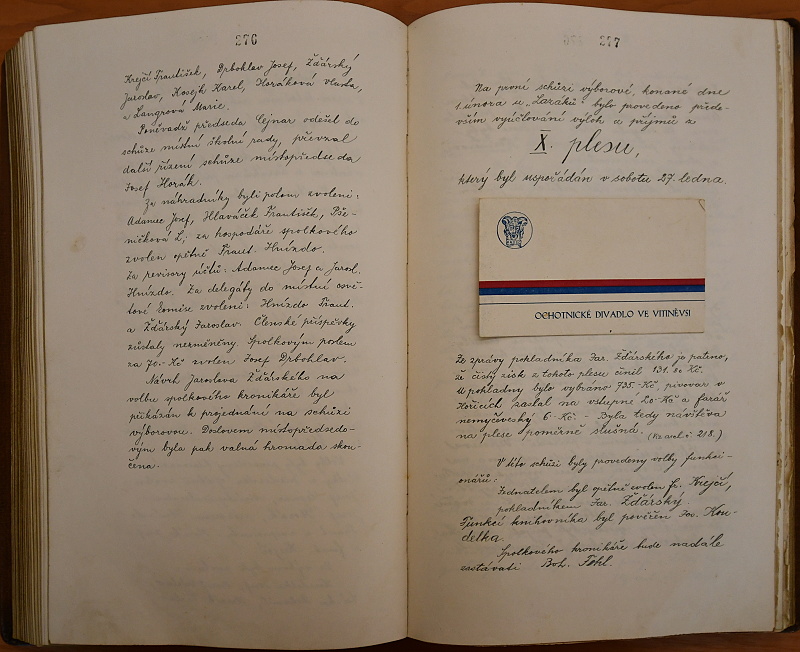 276
Krejčí František, Drbohlav Josef, Žďárský
Jaroslav, Kosejk Karel, Horáková Vlasta,
a Langrová Marie.
Poněvadž předseda Cejnar odešel do
schůze místní školní rady, převzal
další řízení schůze místopředseda
Josef Horák.
Za náhradníky byli potom zvoleni:
Adamec Josef, Hlaváček František, Pše-
ničková L; za hospodáře spolkového
zvolen opětně Frant. Hnízdo.
Za revisory účtů: Adamec Josef a Jarosl.
Hnízdo. Za delegáty do místní osvě-
tové komise zvoleni: Hnízdo Frant.
a Žďárský Jaroslav. Členské příspěvky
zůstaly nezměněny. Spolkovým poslem
za 70.-Kč zvolen Josef Drbohlav.
Návrh Jaroslava Žďárského na
volbu spolkového kronikáře byl
přikázán k projednání na schůzi
výborovou. Doslovem místopředsedo-
vým byla pak valná hromada skon-
čena.
277
Na první schůzi výborové, konané dne
1. února u „Laráků" bylo provedeno přede-
vším vyúčtování výloh a příjmů z
X. plesu,
který byl uspořádán v sobotu 27. ledna.
OCHOTNICKÉ DIVADLO VE VITINĚVSI
Ze zprávy pokladníka Jar. Žďárského je patrno,
že čistý zisk z tohoto plesu činil 131.80 Kč.
U pokladny bylo vybráno 735.-Kč, pivovar v
Hořicích zaslal na vstupné 20.-Kč a farář
nemyčeveský 6.-Kč. - Byla tedy návštěva
na plese poměrně slušná. 218.)
V této schůzi byly provedeny volby funkci-
onářů:
Jednatelem byl opětně zvolen fr. Krejčí,
pokladníkem Jar. Žďárský.
Funkcí knihovníka byl pověřen Jos. Kou-
delka.
Spolkového kronikáře bude nadále
zastávati Boh. Fohl.